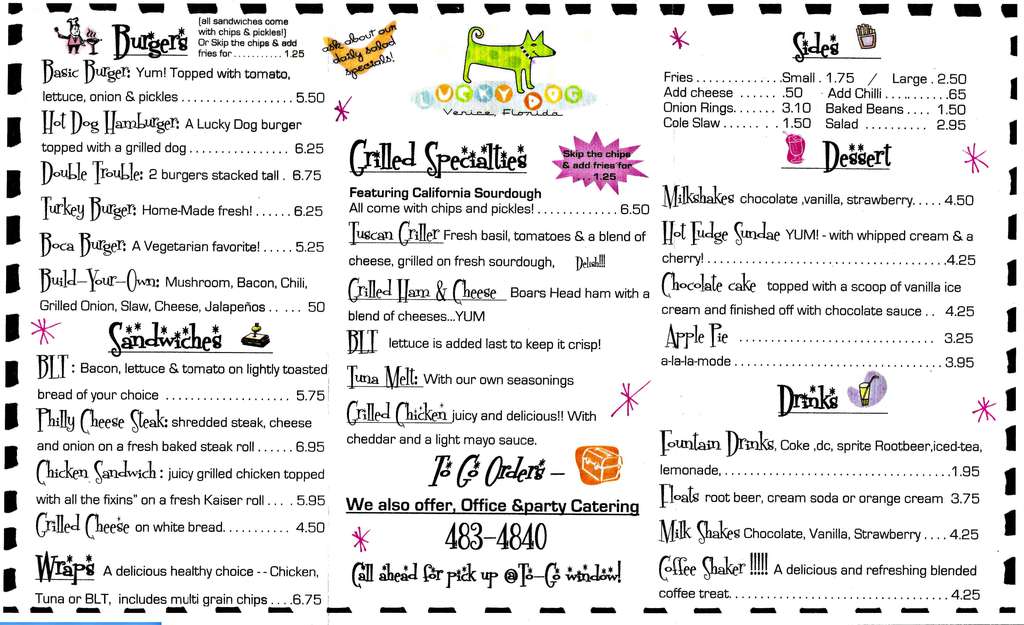 Burgers
(all sandwiches come
with chips & pickles!)
Or Skip the chips & add
fries for ........... 1.25
Basic Burger: Yum! Topped with tomato,
lettuce, onion & pickles .................. 5.50
Hot Dog Hamburger: A Lucky Dog burger
topped with a grilled dog ................ 6.25
Double Trouble: 2 burgers stacked tall . 6.75
Turkey Burger: Home-Made fresh! ...... 6.25
Boca Burger: A Vegetarian favorite! ..... 5.25
Build-Your-Own: Mushroom, Bacon, Chili,
Grilled Onion, Slaw, Cheese, Jalapeños .. .... 50
Sandwiches
BLT : Bacon, lettuce & tomato on lightly toasted
bread of your choice .................... 5.75
Philly Cheese Steak: shredded steak, cheese
and onion on a fresh baked steak roll ...... 6.95
Chicken Sandwich : juicy grilled chicken topped
with all the fixins" on a fresh Kaiser roll .... 5.95
Grilled Cheese on white bread........... 4.50
Wraps A delicious healthy choice -- Chicken,
Tuna or BLT, includes multi grain chips ....6.75
ask about our
daily salad
specials!
LUCKY DOG
Venice, Florida
Grilled Specialties
Skip the chips
& add fries for
... 1.25
Featuring California Sourdough
All come with chips and pickles! ............. 6.50
Tuscan Griller Fresh basil, tomatoes & a blend of
cheese, grilled on fresh sourdough, Delish!!!
Grilled Ham & Cheese Boars Head ham with a
blend of cheeses...YUM
BLT lettuce is added last to keep it crisp!
Tuna Melt: With our own seasonings
Grilled Chicken juicy and delicious!! With
cheddar and a light mayo sauce.
To Go Orders –
We also offer, Office &party Catering
483-4840
Call ahead for pick up @To-Go window!
Sides
Fries ..............Small . 1.75 / Large . 2.50
Add cheese ....... .50 Add Chilli ...........65
Onion Rings....... 3.10 Baked Beans .... 1.50
Cole Slaw ........ 1.50 Salad .......... 2.95
Dessert
Milkshakes chocolate ,vanilla, strawberry..... 4.50
Hot Fudge Sundae YUM! - with whipped cream & a
cherry!.......................................4.25
Chocolate cake topped with a scoop of vanilla ice
cream and finished off with chocolate sauce .. 4.25
Apple Pie ................................ 3.25
a-la-la-mode .................................. 3.95
Drinks
Fountain Drinks, Coke ,dc, sprite Rootbeer,iced-tea,
lemonade,.....................................1.95
Floats root beer, cream soda or orange cream 3.75
Milk Shakes Chocolate, Vanilla, Strawberry .... 4.25
Coffee Shaker !!!!! A delicious and refreshing blended
coffee treat.................................. 4.25